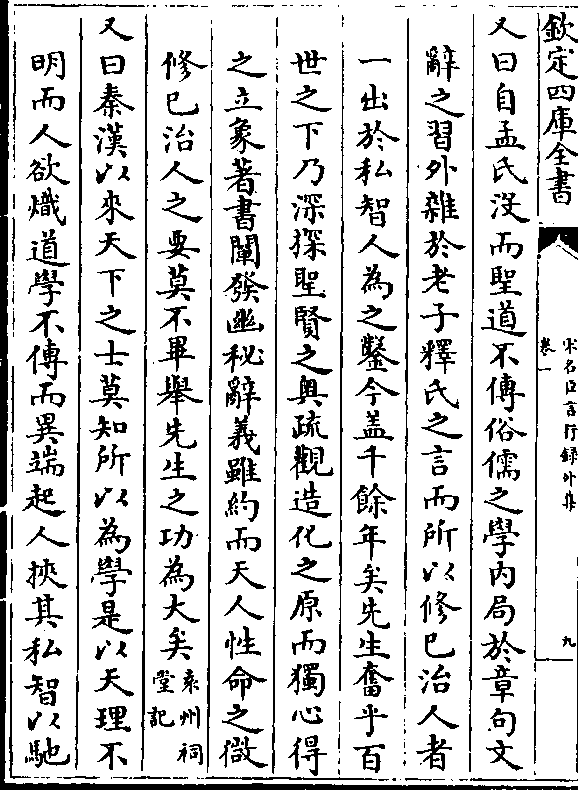 欽定四庫全書
宋名臣言行録外集
卷一
九
又曰自孟氏没而聖道不傳俗儒之學内局於章句文
辭之習外雜於老子釋氏之言而所以修己治人者
一出於私智人為之鑿今盖千餘年矣先生奮乎百
世之下乃深探聖賢之奥疏觀造化之原而獨心得
之立象著書闡發幽秘辭義雖約而天人性命之微
修己治人之要莫不畢舉先生之功為大矣袁州祠
堂記
又曰秦漢以來天下之士莫知所以為學是以天理不
明而人欲熾道學不傳而異端起人挾其私智以馳